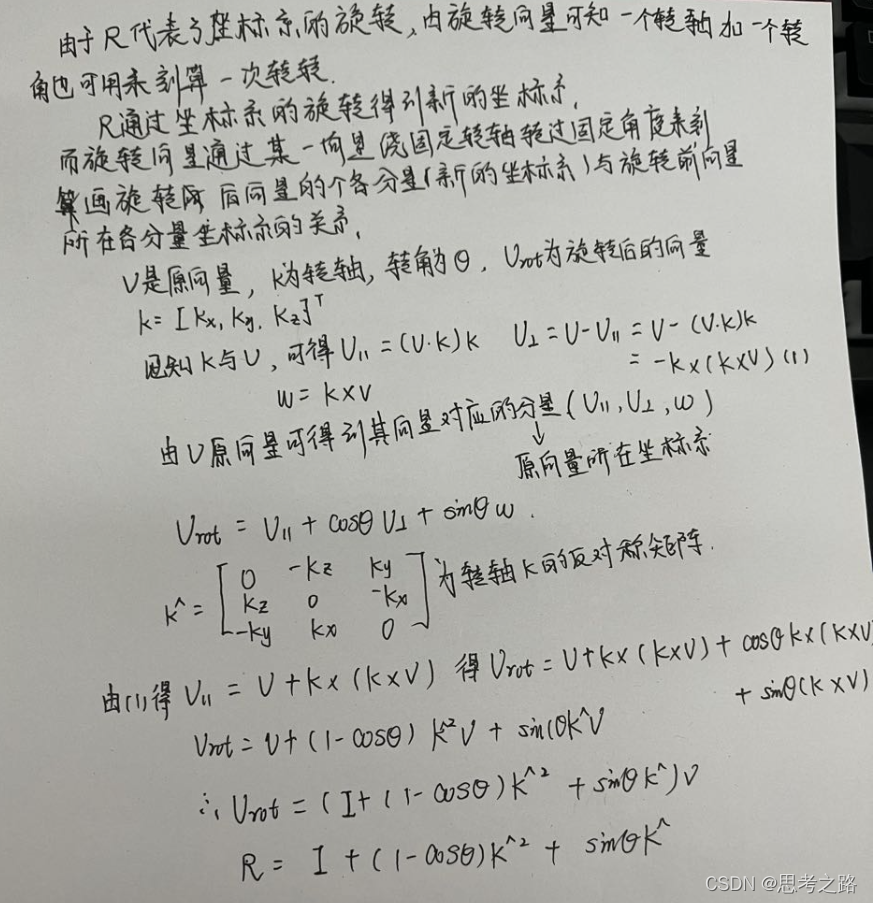 由于R代表了坐标系的旋转,由旋转向量可知一个转轴加一个转
角也可用来刻算一次转转.
R通过坐标系的旋转得到新的坐标系,
而旋转向量通过某一向量绕固定转轴转过固定角度来刻
画旋转后向量的个各分量(新的坐标系)与旋转前向量
所在各分量坐标系的关系,
V是原向量,k为转轴,转角为θ,Vrot为旋转后的向量
k=[kx,ky,kz]ᵀ
已知k与V,可得V∥=(V·k)k V⊥=V-V∥=V-(V·k)k
=-k×(k×V) (1)
w=k×v
由V原向量可得到其向量对应的分量(V∥,V⊥,w)
↓
原向量所在坐标系
Vrot = V∥ + cosθ V⊥ + sinθ w.
k^ = [0 -kz ky
kz 0 -kx
-ky kx 0] 为转轴k的反对称矩阵.
由(1)得 V∥ = V+k×(k×V) 得 Vrot = V+k×(k×V)+cosθk×(k×V)
+ sinθ(k×V)
Vrot = V+(1-cosθ) k^²V + sin(θk^V
∴Vrot = (I+(1-cosθ)k^² + sinθk^)V
R = I+(1-cosθ)k^² + sinθk^
CSDN @思考之路